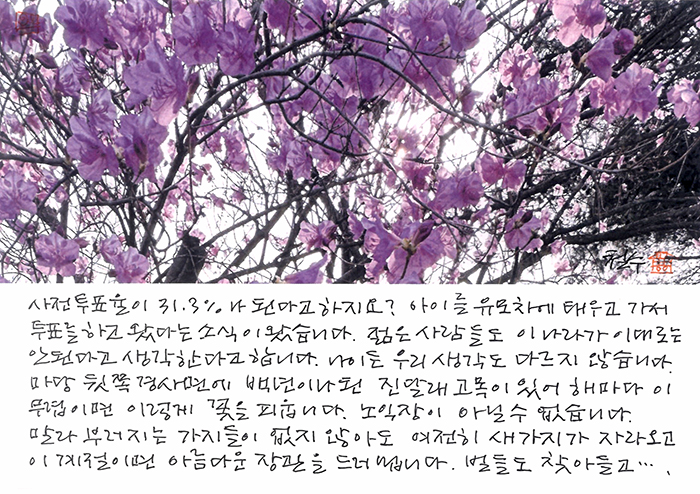 사전투표율이 31.3%나 된다고 하지요? 아이를 유모차에 태우고 가서
투표를 하고 왔다는 소식이 왔습니다. 젊은 사람들도 이 나라가 이대로는
안된다고 생각한다고 합니다. 나이든 우리 생각도 다르지 않습니다.
마당 뒷쪽 경사면에 백년이나 된 진달래 고목이 있어 해마다 이
무렵이면 이렇게 꽃을 피웁니다. 노익장이 아닐 수 없습니다.
말라 부러지는 가지들이 없지 않아도 여전히 새가지가 자라오고
이 계절이면 아름다운 장관을 드러냅니다. 벌들도 찾아들고….